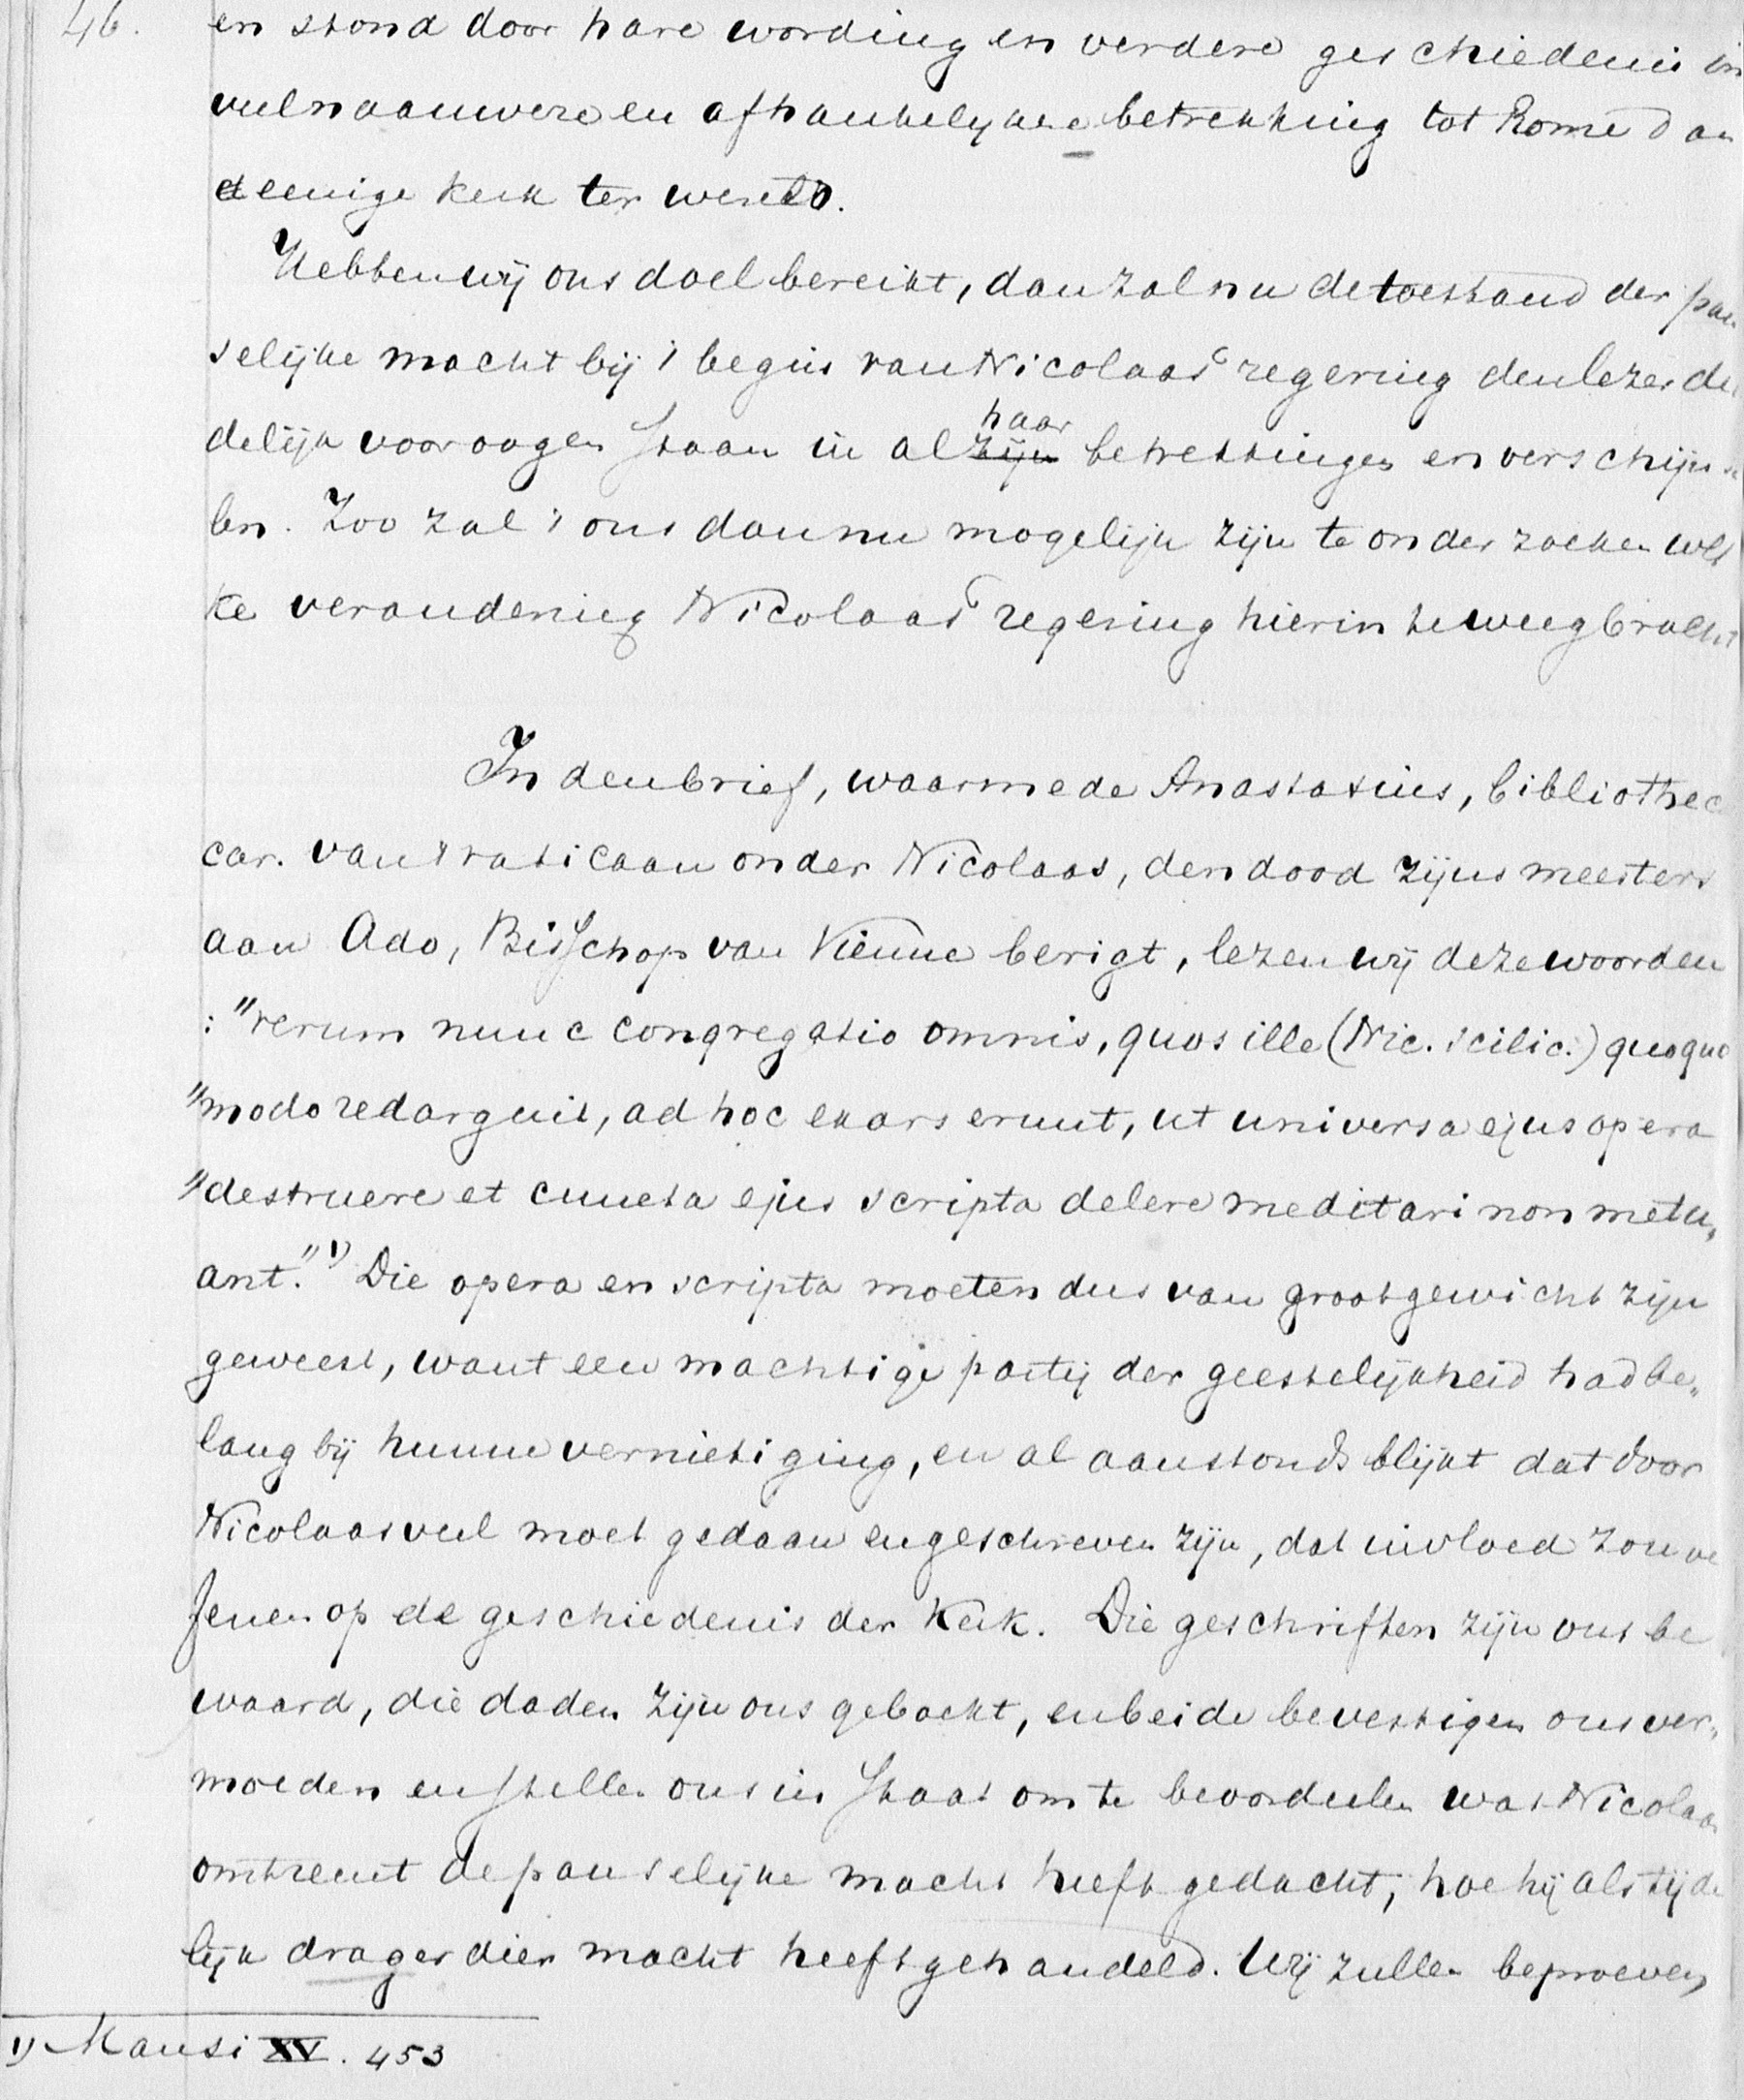 46.
en stond door hare wording en verdere geschiedenis in
veel naauwere en afhankelijkere betrekking tot Rome dan
eenige kerk ter wereld.
Hebben wij ons doel bereikt, dan zal nu de toestand der pau
selijke macht bij 't begin van Nicolaas' regering den lezer dui
delijk voor oogen staan in al zijn haar betrekkingen en verschijnse
len. Zoo zal 't ons dan nu mogelijk zijn te onderzoeken wel
ke verandering Nicolaas' regering hierin te weeg bracht
In den brief, waarmede Anastasius, bibliothec
car. van 't vaticaan onder Nicolaas, den dood zijns meesters
aan Ado, Bisschop van Vienne berigt, lezen wij deze woorden
: "verum nunc congregatio omnis, quos ille (Nic. scilic.) quoquo
"modo redarguit, ad hoc exarserunt, ut universa ejus opera
"destruere et cuncta ejus scripta delere meditari non metu„
ant." 1) Die opera en scripta moeten dus van groot gewicht zijn
geweest, want een machtige partij der geestelijkheid had be„
lang bij hunne vernietiging, en al aanstonds blijkt dat door
Nicolaas veel moet gedaan en geschreven zijn, dat invloed zou oe
fenen op de geschiedenis der Kerk. Die geschriften zijn ons be
waard, die daden zijn ons geboekt, en beide bevestigen ons ver„
moeden en stellen ons in staat om te beoordeelen wat Nicolaas
omtrent de pauselijke macht heeft gedacht, hoe hij als tijde
lijk drager dier macht heeft gehandeld. Wij zullen beproeven
1) Mansi XV. 453